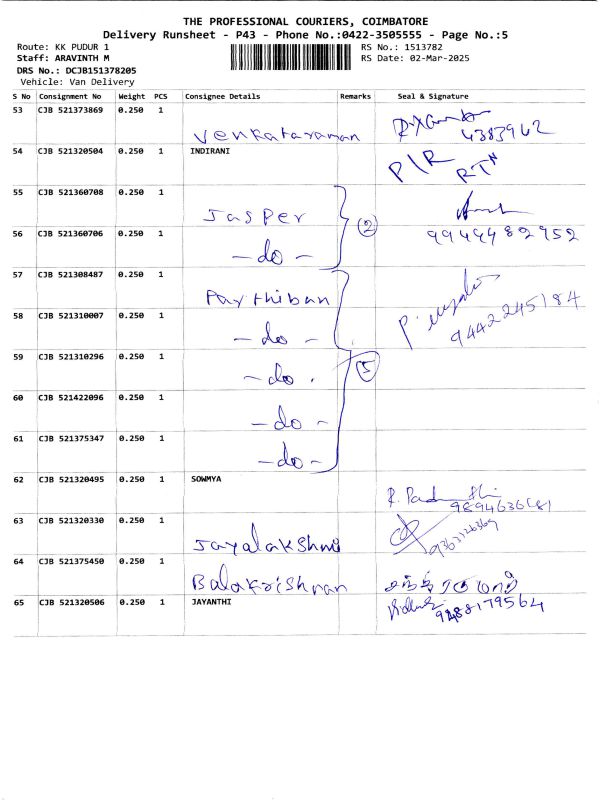 THE PROFESSIONAL COURIERS, COIMBATORE
Delivery Runsheet - P43 - Phone No.:0422-3505555 - Page No.:5
Route: KK PUDUR 1
RS No.: 1513782
Staff: ARAVINTH M
RS Date: 02-Mar-2025
DRS No.: DCJB151378205
Vehicle: Van Delivery
S No Consignment No Weight PCS Consignee Details Remarks Seal & Signature
53 CJB 521373869 0.250 1 Venkataraman 4383962
54 CJB 521320504 0.250 1 INDIRANI P/R RTN
55 CJB 521360708 0.250 1 Jasper
56 CJB 521360706 0.250 1 -do- 2 9949982952
57 CJB 521308487 0.250 1 Parthiban
58 CJB 521310007 0.250 1 -do- 9442245184
59 CJB 521310296 0.250 1 -do. 5
60 CJB 521422096 0.250 1 -do-
61 CJB 521375347 0.250 1 -do-
62 CJB 521320495 0.250 1 SOWMYA
63 CJB 521320330 0.250 1 Jayalakshmi
64 CJB 521375450 0.250 1 Balakrishnan
65 CJB 521320506 0.250 1 JAYANTHI 9488179564